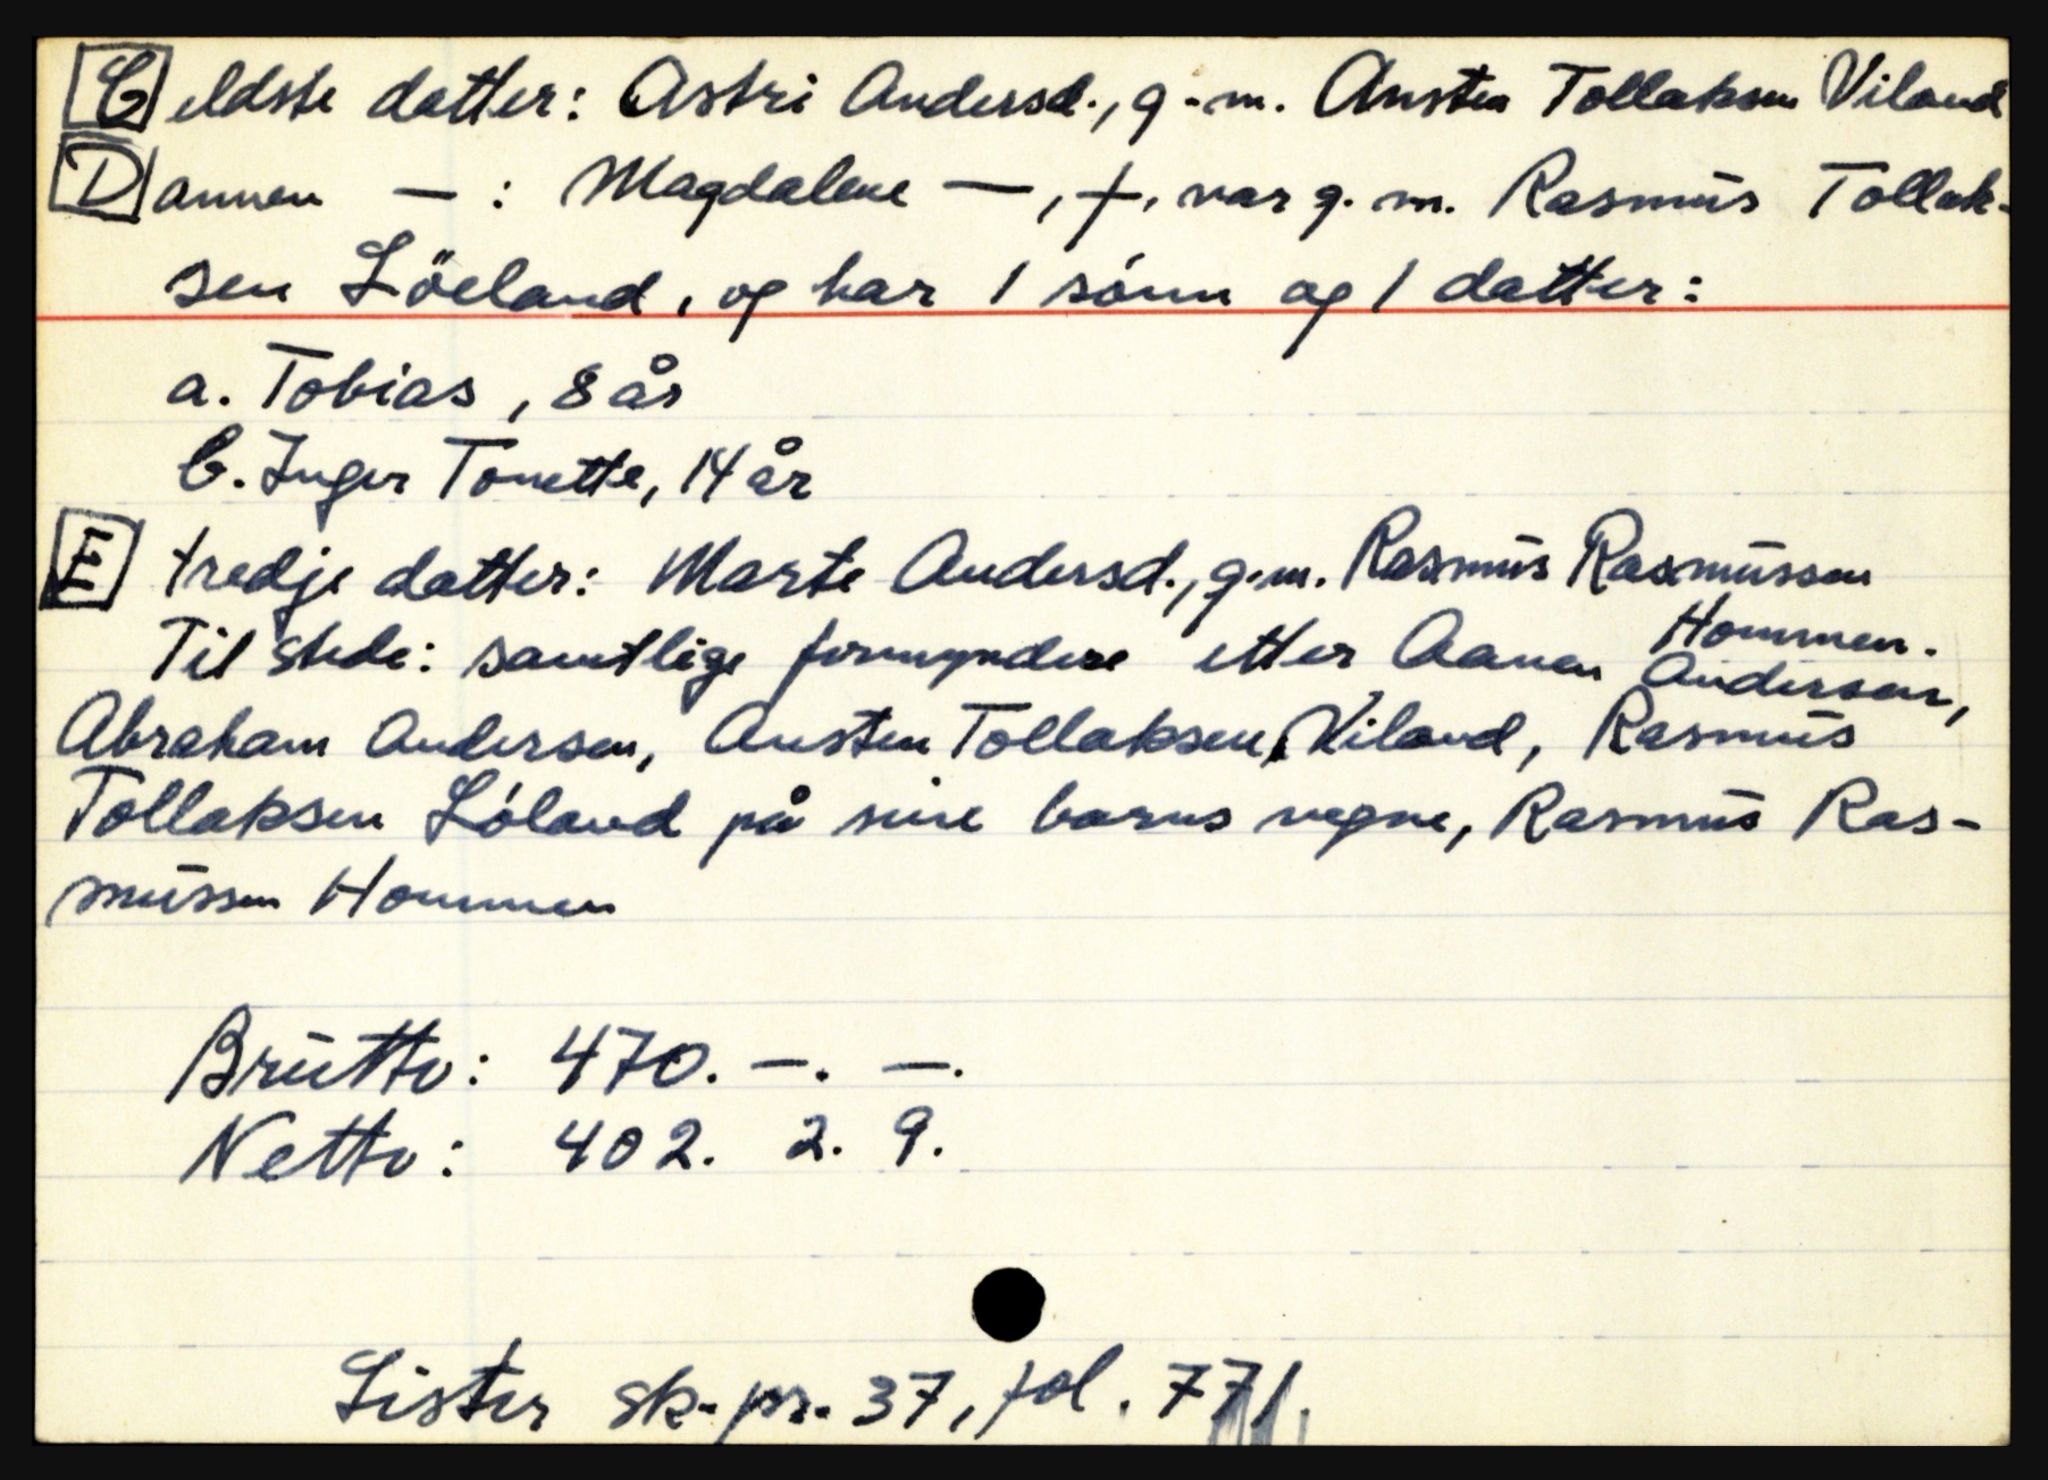 C eldste datter: Astri Andersd., g.m. Austen Tollaksen Viland
D annen — : Magdalene —, †, var g.m. Rasmus Tollak-
sen Löeland, og har 1 sónn og 1 datter:
a. Tobias, 8 år
b. Inger Tonette, 14 år
E tredje datter: Marte Andersd., g.m. Rasmus Rasmussen
Hommen.
Til stede: samtlige formyndere etter Aanen Andersen,
Abraham Andersen, Austen Tollaksen Viland, Rasmus
Tollaksen Lóland på sine barns vegne, Rasmus Ras-
mussen Hommen
Brutto: 470. —. —.
Netto: 402. 2. 9.
Lister sk.pr. 37, fol. 771.